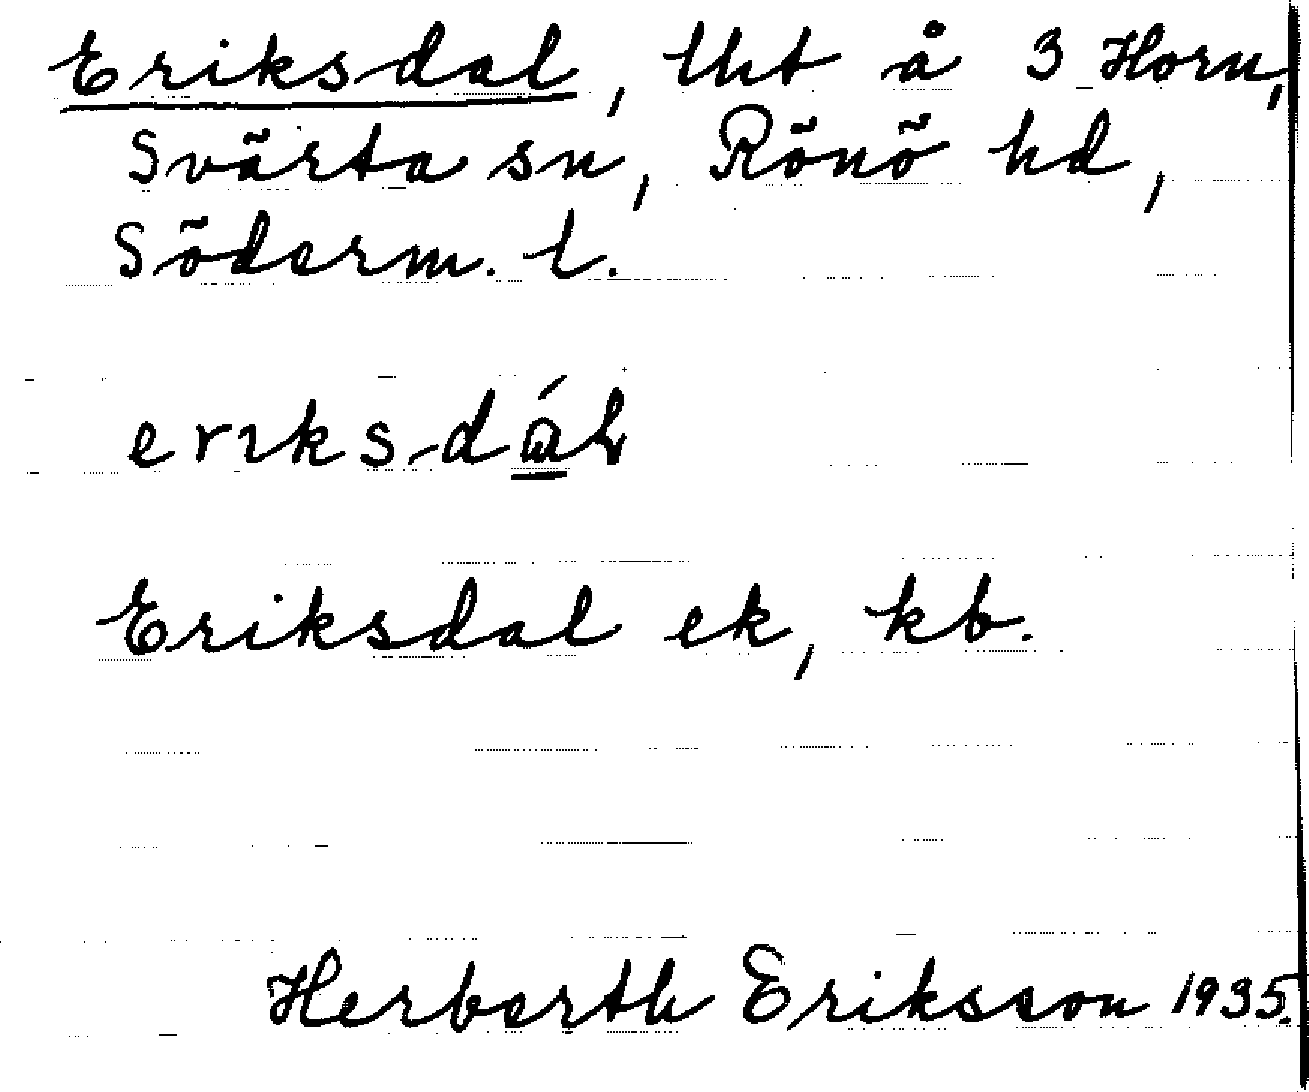 Eriksdal, tht å 3 Horn,
Svärta sn, Rönö hd,
Söderm. l.
eriksdál
Eriksdal ek, kb.
Herberth Eriksson 1935.